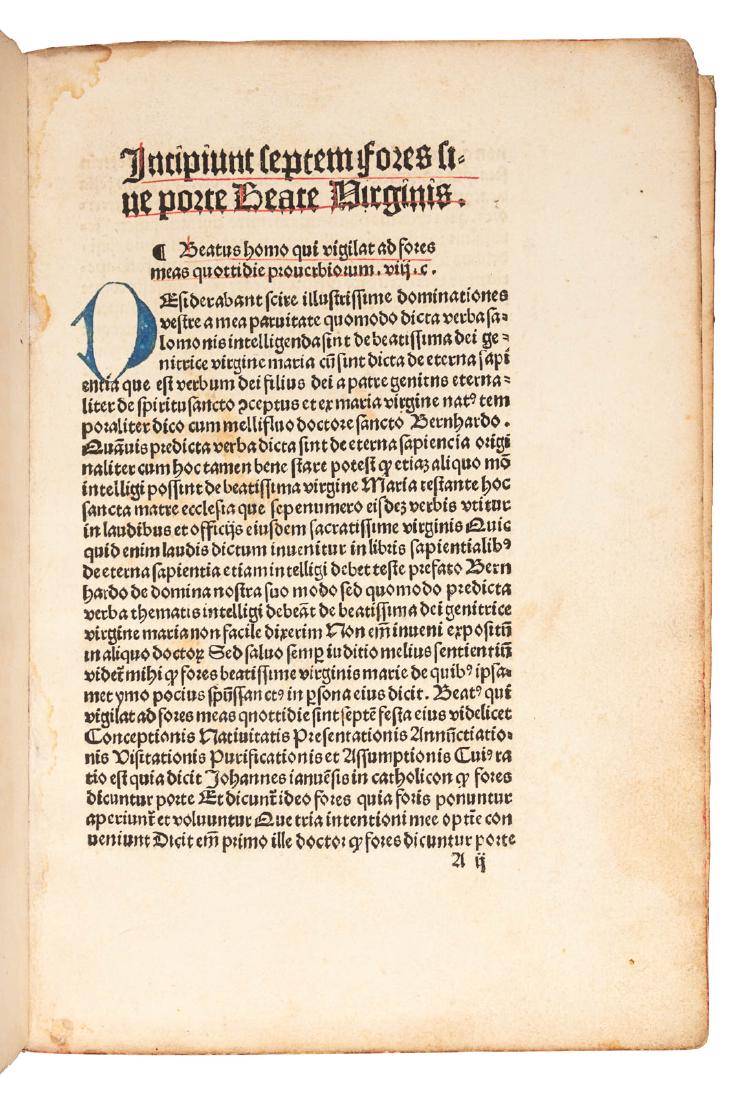 Incipiunt septem fores si-
ue porte Beate Virginis.
¶ Beatus homo qui vigilat ad fores
meas quottidie prouerbiorum. viij. c.
DEsiderabant scire illustrissime dominationes
vestre a mea paruitate quomodo dicta verba sa-
lomonis intelligenda sint de beatissima dei ge-
nitrice virgine maria cũ sint dicta de eterna sapi
entia que est verbum dei filius dei a patre genitus eterna-
liter de spiritusancto ꝯceptus et ex maria virgine natꝰ tem
poraliter dico cum mellifluo doctore sancto Bernhardo.
Quãuis predicta verba dicta sint de eterna sapiencia origi
naliter cum hoc tamen bene stare potest ꝙ etiaꝫ aliquo mõ
intelligi possint de beatissima virgine Maria testante hoc
sancta matre ecclesia que sepenumero eisdeꝫ verbis vtitur
in laudibus et officijs eiusdem sacratissime virginis Quic
quid enim laudis dictum inuenitur in libris sapientialibꝰ
de eterna sapientia etiam intelligi debet teste prefato Bern
hardo de domina nostra suo modo sed quomodo predicta
verba thematis intelligi debeãt de beatissima dei genitrice
virgine maria non facile dixerim Non em̃ inueni expositũ
in aliquo doctoꝝ Sed saluo semp̲ iuditio melius sentientiũ
videt̃ mihi ꝙ fores beatissime virginis marie de quibꝰ ipsa-
met ymo pocius sp̃ussanctꝰ in p̲sona eius dicit. Beatꝰ qui
vigilat ad fores meas qnottidie sint septẽ festa eius videlicet
Conceptionis Natiuitatis Presentationis Annũctiatio-
nis Visitationis Purificationis et Assumptionis Cuiꝰ ra
tio est quia dicit Johannes ianuẽsis in catholicon ꝙ fores
dicuntur porte Et dicunt̃ ideo fores quia foris ponuntur
aperiunt̃ et voluuntur Que tria intentioni mee optĩe con
ueniunt Dicit em̃ primo ille doctor ꝙ fores dicuntur porte
A ij